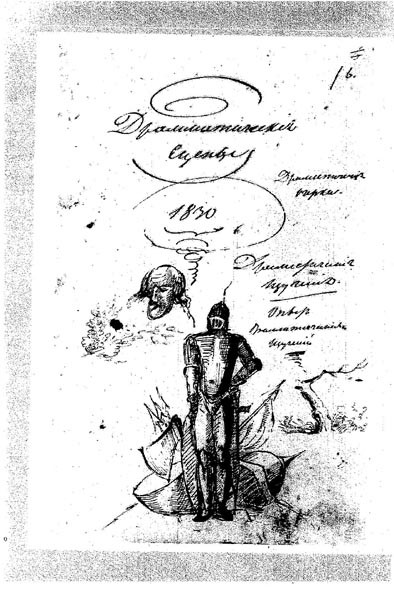 Драмматическiя
сцены
1830
Драматическiе
очерки.
Драмматическiя
изученiя.
Опыт
Драмматических
изученiй